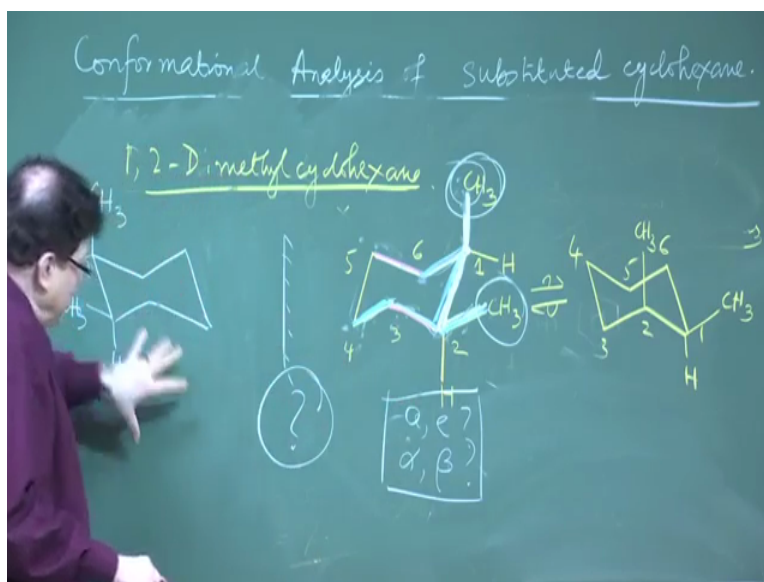 Conformational Analysis of substituted cyclohexane.
1,2-Dimethylcyclohexane.
CH3
CH3
H
?
CH3
6
5
1
H
CH3
3
4
2
H
a, e ?
α, β ?
CH3
4
6
5
CH3
2
1
3
H